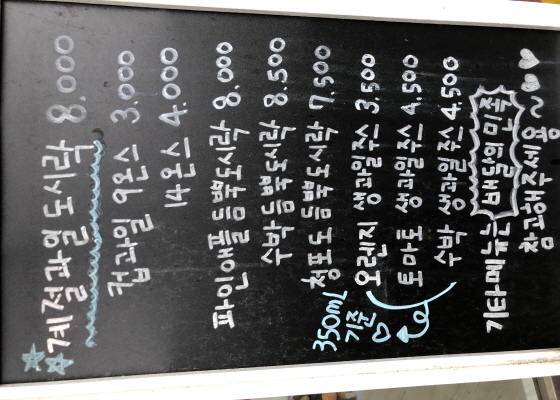 계절과일도시락 8.000
컵과일 9온스 3.000
14온스 4.000
파인애플듬뿍도시락 8.000
수박듬뿍도시락 8.500
청포도듬뿍도시락 7.500
오렌지 생과일쥬스 3.500
토마토 생과일쥬스 4.500
수박 생과일쥬스 4.500
350ml
기준
기타메뉴는 배달의민족
참고해주세용~